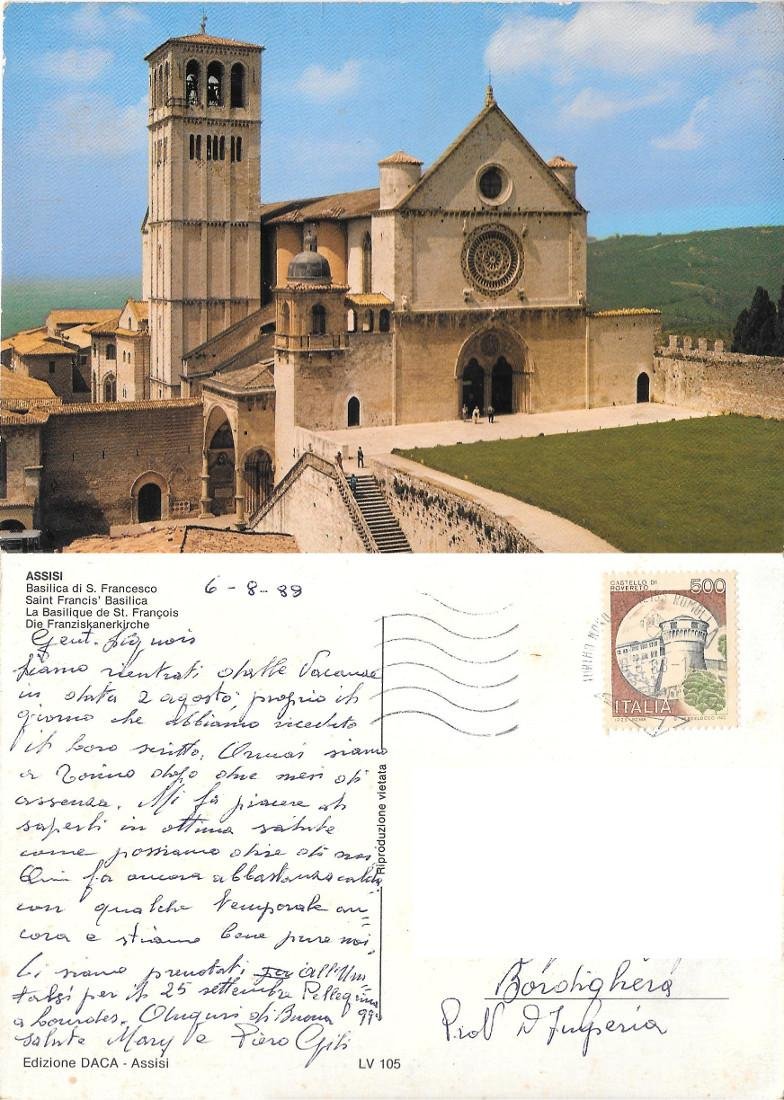 ASSISI
Basilica di S. Francesco
Saint Francis' Basilica
La Basilique de St. François
Die Franziskanerkirche
6-8-89
Gent. Signori
Siamo rientrati dalle Vacanze
in data 2 agosto, proprio il
giorno che abbiamo ricevuto
il loro scritto. Ormai siamo
a Torino dopo due mesi di
assenza. Mi fa piacere di
saperli in ottima salute
come possiamo dire di noi
Qui fa ancora abbastanza caldo
con qualche temporale an=
cora e stiamo bene pure noi,
Ci siamo prenotati all'Uni
talsi per il 25 settembre Pellegrina
a Lourdes. Auguri di Buona
salute Mary e Piero
Edizione DACA - Assisi
LV 105
Riproduzione vietata
CASTELLO DI
ROVERETO
500
ITALIA
Bordighera
Prov D'Imperia